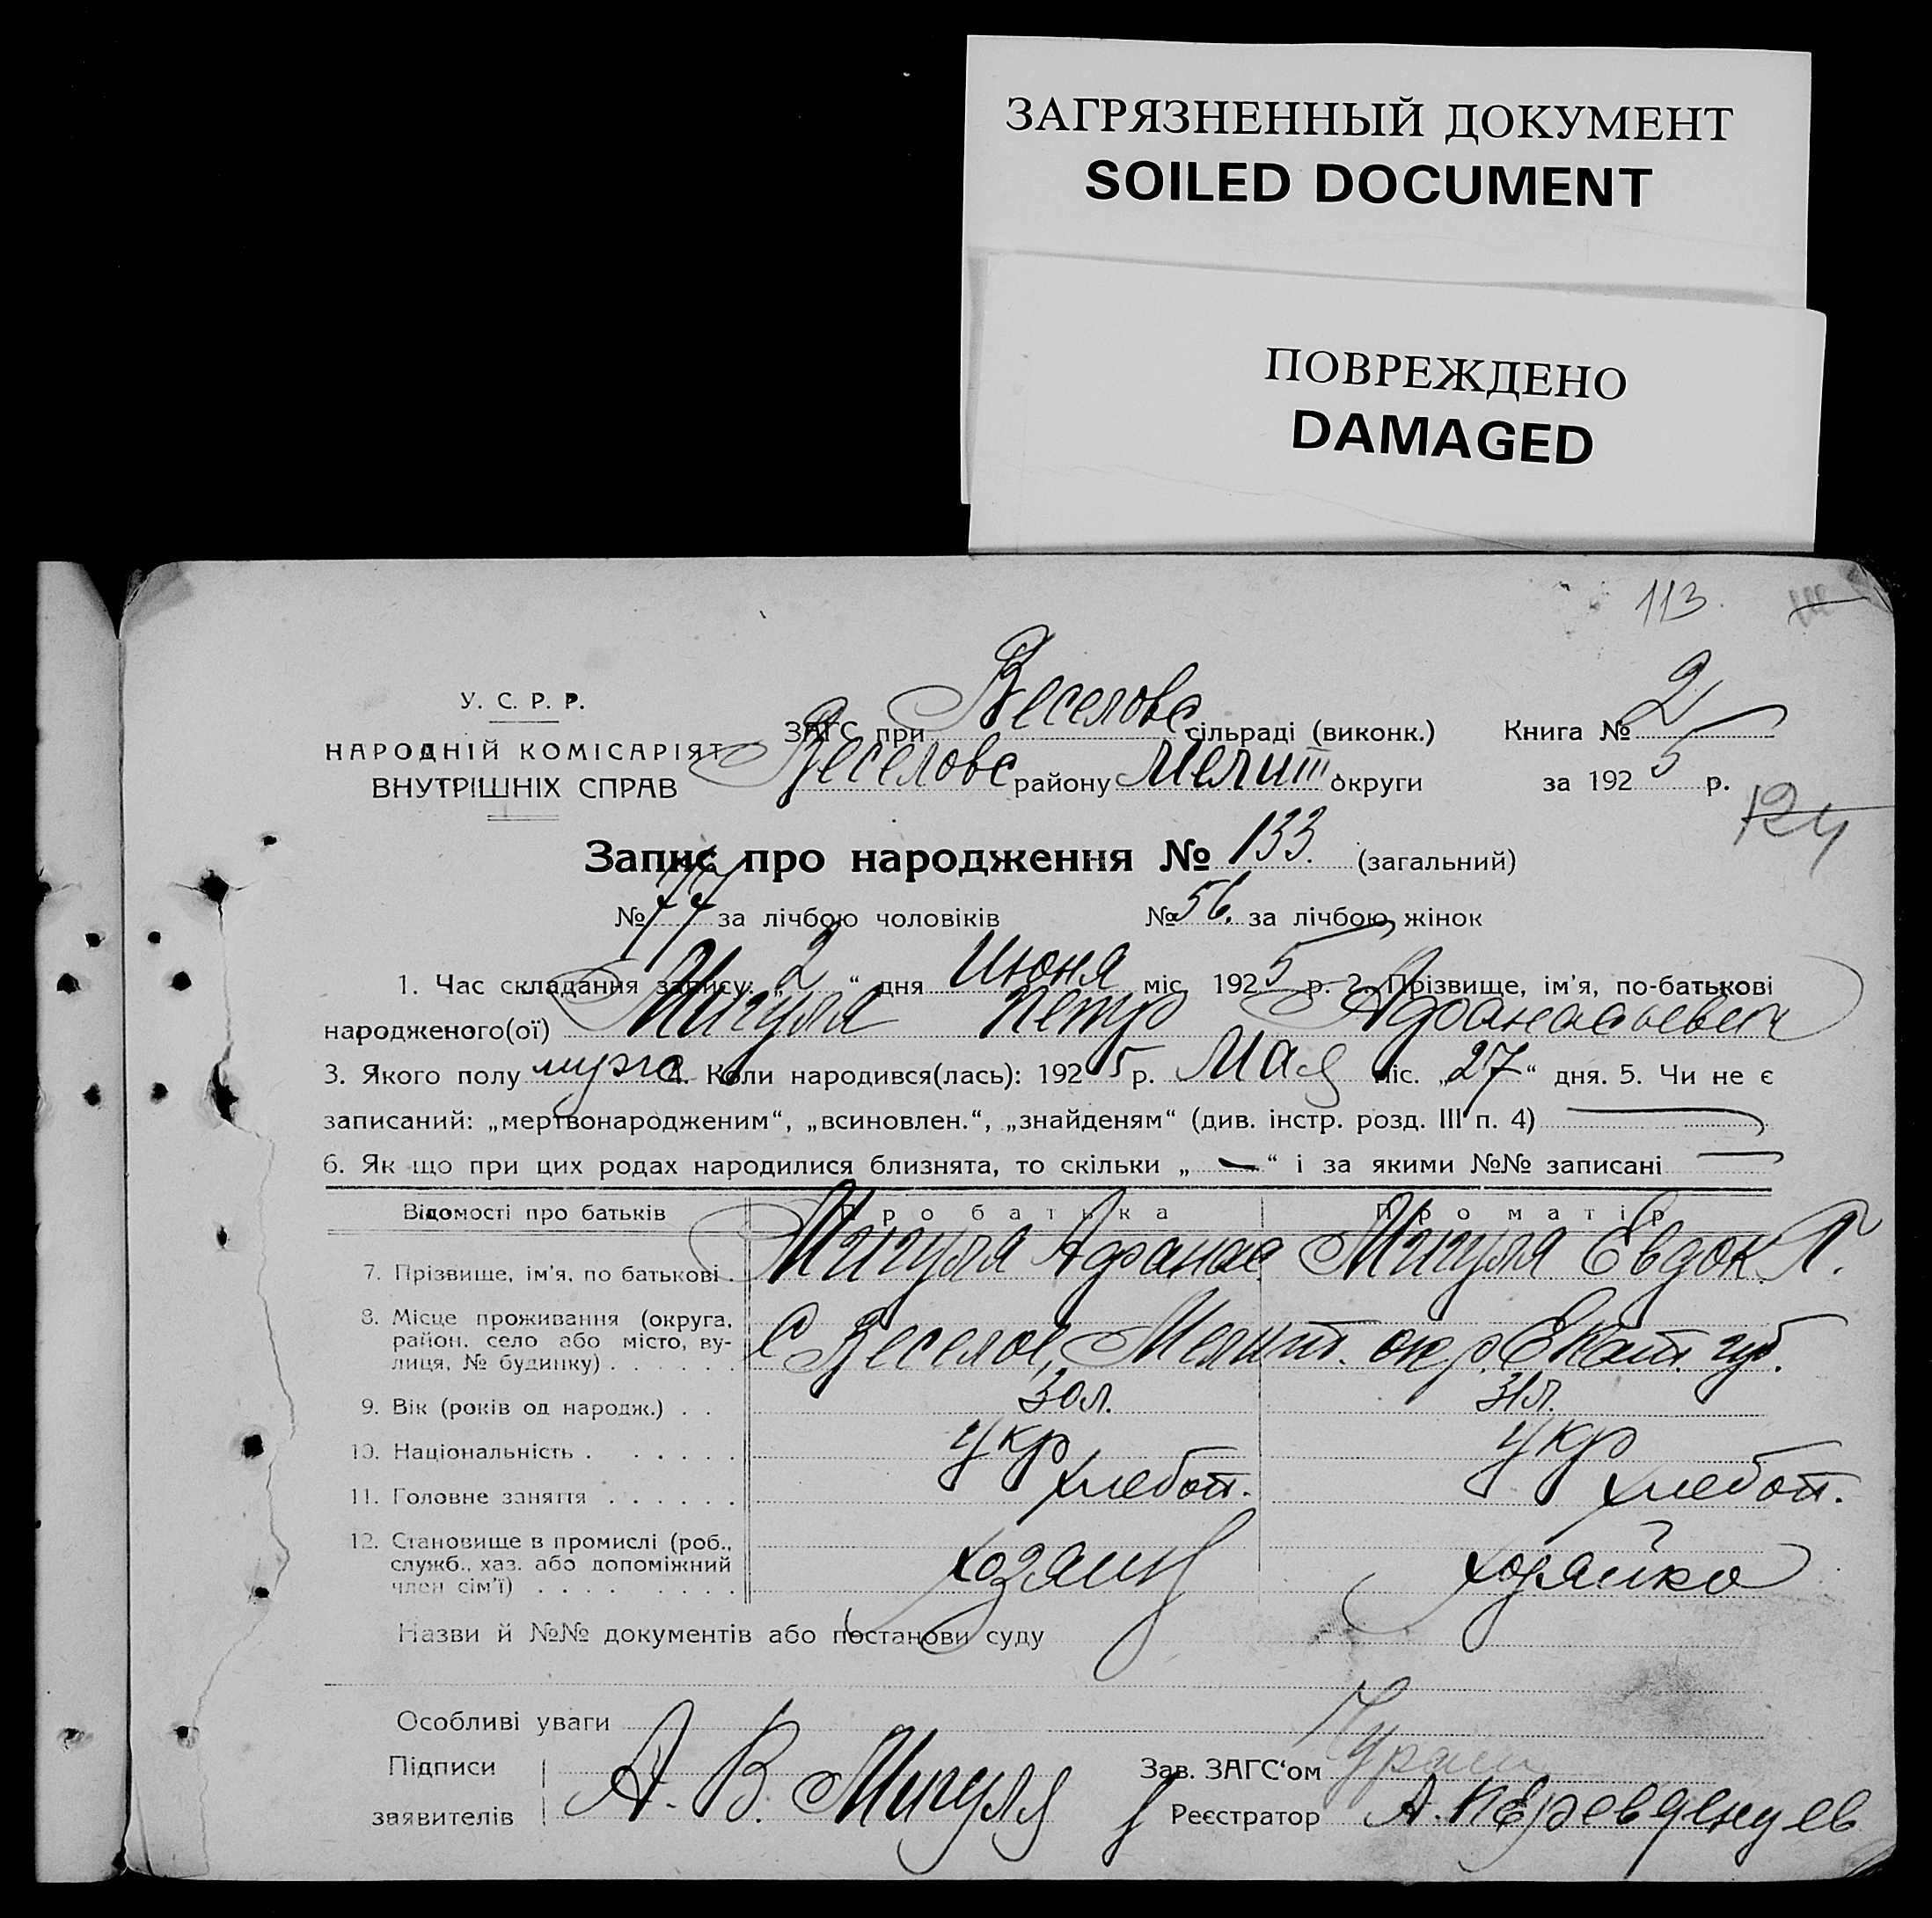 ЗАГРЯЗНЕННЫЙ ДОКУМЕНТ
SOILED DOCUMENT
ПОВРЕЖДЕНО
DAMAGED
113
У. С. Р. Р.
НАРОДНІЙ КОМІСАРІЯТ
ВНУТРІШНІХ СПРАВ
ЗАГС при Веселовс сільраді (виконк.) Книга № 2
Веселовс району Мелит округи за 1925 р.
124
Запис про народження № 133. (загальний)
№ 77 за лічбою чоловіків № 56. за лічбою жінок
1. Час складання запису: „2“ дня Июня міс. 1925 р. 2. Прізвище, ім'я, по-батькові
народженого(ої) Мигуля Петр Афанасьевич
3. Якого полу мужс 4. Коли народився(лась): 1925 р. Мая міс. „27“ дня. 5. Чи не є
записаний: „мертвонародженим“, „всиновлен.“, „знайденям“ (див. інстр. розд. III п. 4)
6. Як що при цих родах народилися близнята, то скільки „ — “ і за якими №№ записані
Відомості про батьків Про батька Про матір
7. Прізвище, ім'я, по батькові . Мигуля Афанас Мигуля Евдок. Г.
8. Місце проживання (округа,
район, село або місто, ву-
лиця, № будинку) . . . . . . С Веселое, Мелит. окр. Екат. губ.
9. Вік (років од народж.) . . 30 л. 31 л.
10. Національність . . . . . . Укр Укр
11. Головне заняття . . . . . . хлебоп. хлебоп.
12. Становище в промислі (роб.,
служб., хаз. або допоміжний
член сім'ї) . . . . . . . . . хозяин хозяйка
Назви й №№ документів або постанови суду
Особливі уваги
Підписи
заявителів А. В. Мигуля
Зав. ЗАГС'ом
Реєстратор А. Переведенцев